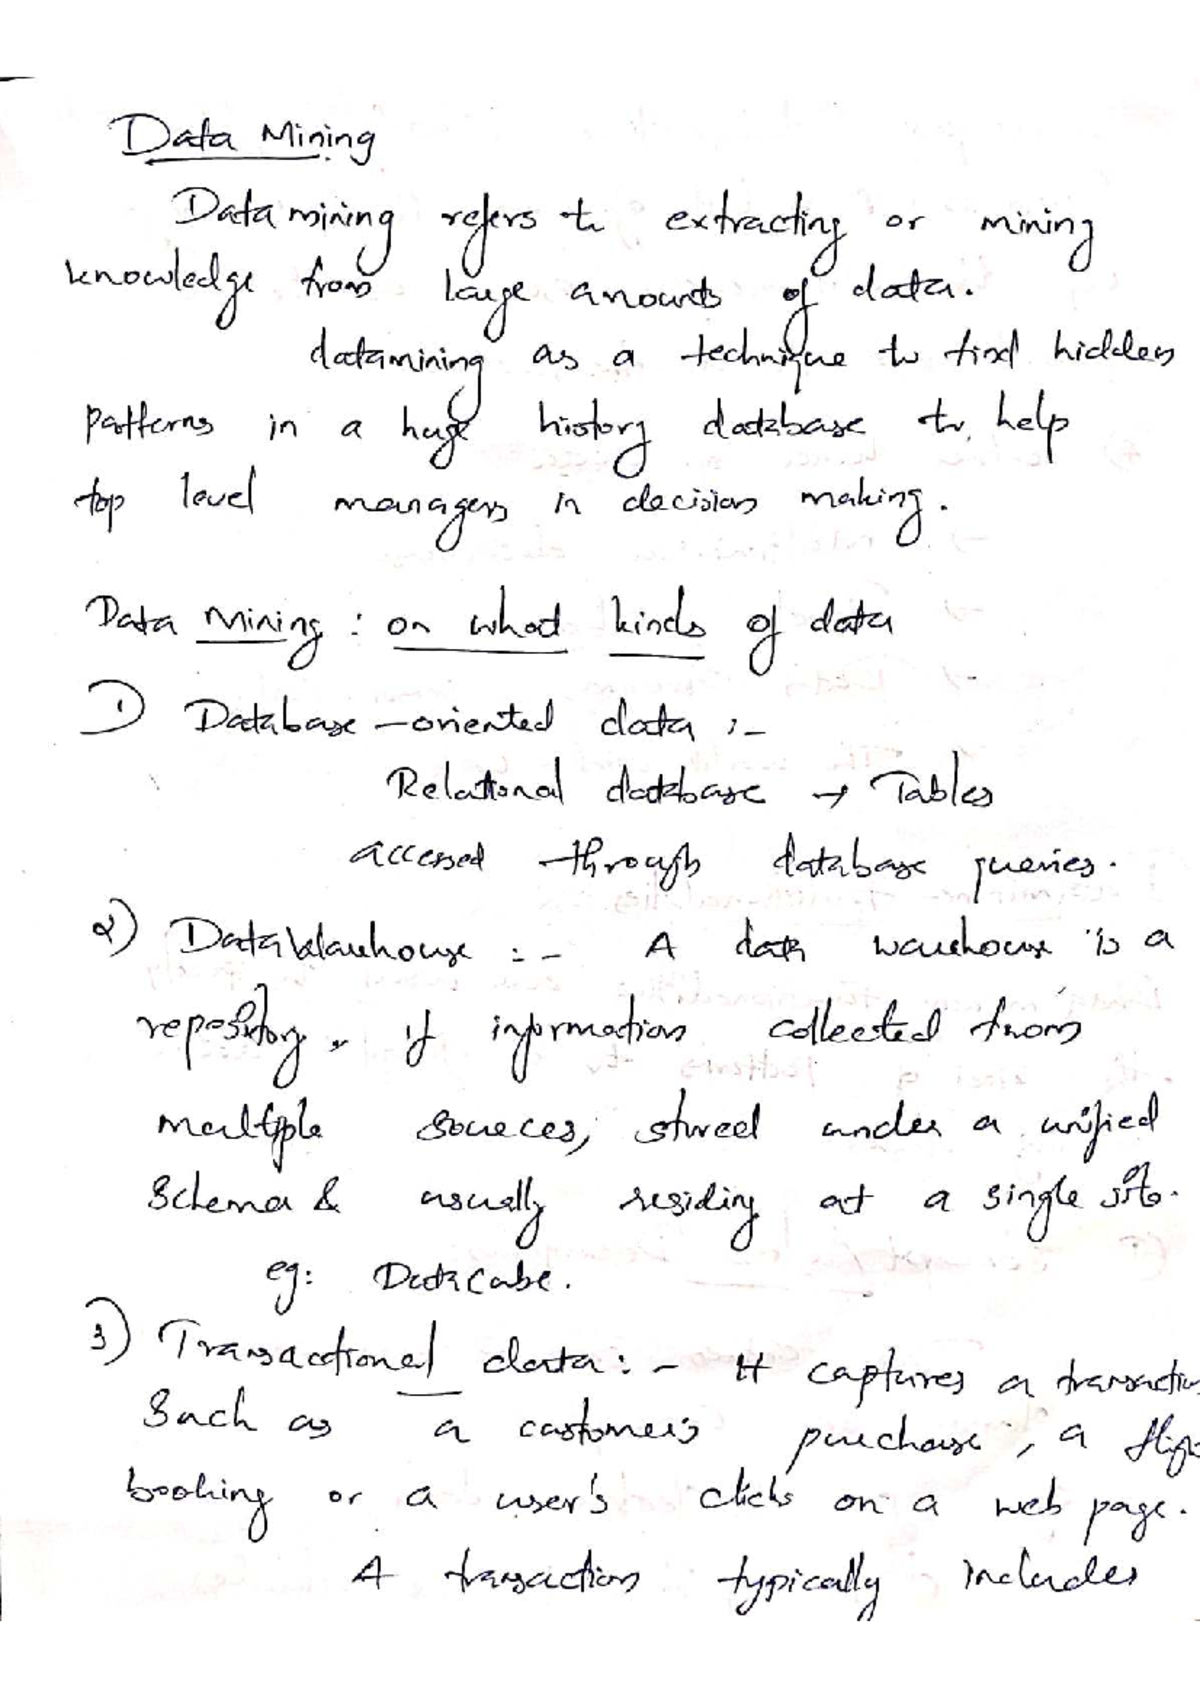 Data Mining
Data mining refers to extracting or mining
knowledge from large amounts of data.
datamining as a technique to find hidden
patterns in a huge history database to help
top level managers in decision making.
Data Mining : on what kinds of data
1) Database - oriented data :-
Relational database → Tables
accessed through database queries.
2) Data Warehouse :- A data warehouse is a
repository of information collected from
multiple sources, stored under a unified
Schema & usually residing at a single site.
eg: Datacube.
3) Transactional data :- It captures a transaction
Such as a customer's purchase, a
booking or a user's clicks on a web page.
A transaction typically includes